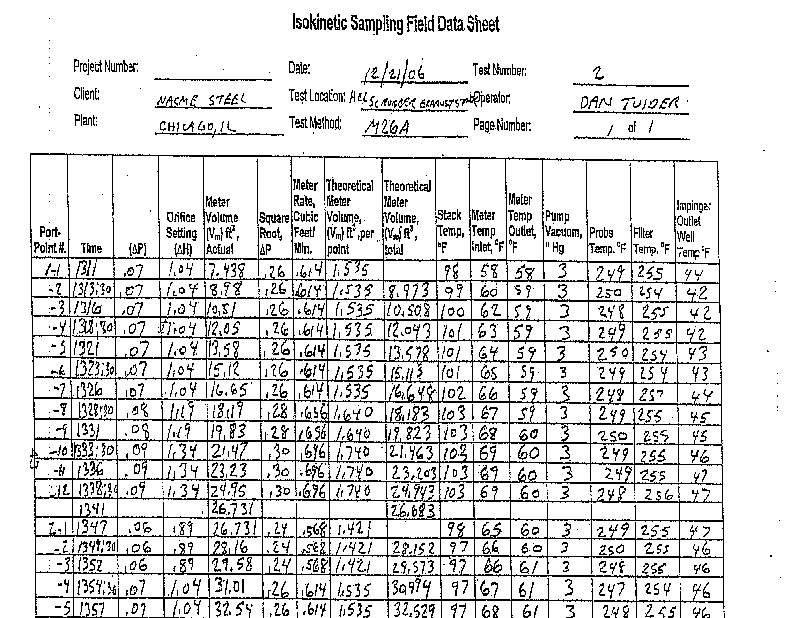 Isokinetic Sampling Field Data Sheet
Project Number: Date: 12/21/06 Test Number: 2
Client: NACME STEEL Test Location: HCL SCRUBBER EXHAUST Operator: DAN TUIDER
Plant: CHICAGO, IL Test Method: M26A Page Number: 1 of 1
Port-Point #. Time (ΔP) Orifice Setting (ΔH) Meter Volume (Vm) ft³, Actual Square Root, ΔP Meter Rate, Cubic Feet/ Min. Theoretical Meter Volume, (Vm) ft³, per point Theoretical Meter Volume, (Vm) ft³, total Stack Temp, °F Meter Temp Inlet, °F Meter Temp Outlet, °F Pump Vacuum, " Hg Probe Temp. °F Filter Temp. °F Impinger Outlet Well Temp °F
1-1 1311 .07 1.04 7.438 .26 .614 1.535 98 58 58 3 249 255 44
-2 1313:30 .07 1.04 8.98 .26 .614 1.535 8.973 99 60 59 3 250 254 42
-3 1316 .07 1.04 10.51 .26 .614 1.535 10.508 100 62 59 3 248 255 42
-4 1318:30 .07 1.04 12.05 .26 .614 1.535 12.043 101 63 59 3 249 255 42
-5 1321 .07 1.04 13.58 .26 .614 1.535 13.578 101 64 59 3 250 254 43
-6 1323:30 .07 1.04 15.12 .26 .614 1.535 15.113 101 65 59 3 249 254 43
-7 1326 .07 1.04 16.65 .26 .614 1.535 16.648 102 66 59 3 248 257 44
-8 1328:30 .08 1.19 18.19 .28 .656 1.640 18.183 103 67 59 3 249 255 45
-9 1331 .08 1.19 19.83 .28 .656 1.640 19.823 103 68 60 3 250 255 45
-10 1333:30 .09 1.34 21.47 .30 .696 1.740 21.463 102 69 60 3 249 255 46
-11 1336 .09 1.34 23.23 .30 .696 1.740 23.203 103 69 60 3 249 255 47
-12 1338:30 .09 1.34 24.95 .30 .696 1.740 24.943 103 69 60 3 248 256 47
1341 26.731 26.683
2-1 1347 .06 .89 26.731 .24 .568 1.421 98 65 60 3 249 255 47
-2 1349:30 .06 .89 28.16 .24 .568 1.421 28.152 97 66 60 3 250 255 46
-3 1352 .06 .89 29.58 .24 .568 1.421 29.573 97 66 61 3 248 255 46
-4 1354:30 .07 1.04 31.01 .26 .614 1.535 30.994 97 67 61 3 247 254 46
-5 1357 .07 1.04 32.54 .26 .614 1.535 32.529 97 68 61 3 248 255 46